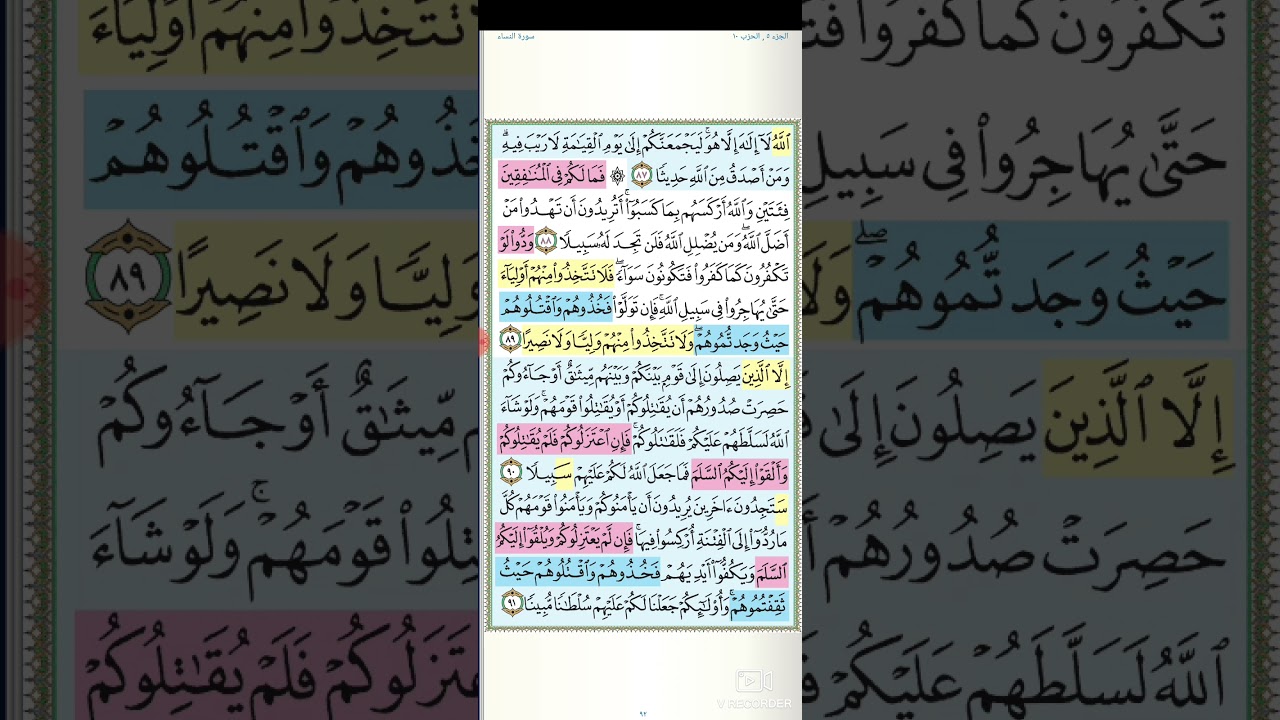 سورة النساء
الجزء ٥ , الحزب ١٠
ٱللَّهُ لَآ إِلَٰهَ إِلَّا هُوَۚ لَيَجْمَعَنَّكُمْ إِلَىٰ يَوْمِ ٱلْقِيَٰمَةِ لَا رَيْبَ فِيهِۗ
وَمَنْ أَصْدَقُ مِنَ ٱللَّهِ حَدِيثًا ٨٧ ۞ فَمَا لَكُمْ فِى ٱلْمُنَٰفِقِينَ
فِئَتَيْنِ وَٱللَّهُ أَرْكَسَهُم بِمَا كَسَبُوٓا۟ۚ أَتُرِيدُونَ أَن تَهْدُوا۟ مَنْ
أَضَلَّ ٱللَّهُۖ وَمَن يُضْلِلِ ٱللَّهُ فَلَن تَجِدَ لَهُۥ سَبِيلًا ٨٨ وَدُّوا۟ لَوْ
تَكْفُرُونَ كَمَا كَفَرُوا۟ فَتَكُونُونَ سَوَآءًۖ فَلَا تَتَّخِذُوا۟ مِنْهُمْ أَوْلِيَآءَ
حَتَّىٰ يُهَاجِرُوا۟ فِى سَبِيلِ ٱللَّهِۚ فَإِن تَوَلَّوْا۟ فَخُذُوهُمْ وَٱقْتُلُوهُمْ
حَيْثُ وَجَدتُّمُوهُمْۖ وَلَا تَتَّخِذُوا۟ مِنْهُمْ وَلِيًّا وَلَا نَصِيرًا ٨٩
إِلَّا ٱلَّذِينَ يَصِلُونَ إِلَىٰ قَوْمٍۭ بَيْنَكُمْ وَبَيْنَهُم مِّيثَٰقٌ أَوْ جَآءُوكُمْ
حَصِرَتْ صُدُورُهُمْ أَن يُقَٰتِلُوكُمْ أَوْ يُقَٰتِلُوا۟ قَوْمَهُمْۚ وَلَوْ شَآءَ
ٱللَّهُ لَسَلَّطَهُمْ عَلَيْكُمْ فَلَقَٰتَلُوكُمْۚ فَإِنِ ٱعْتَزَلُوكُمْ فَلَمْ يُقَٰتِلُوكُمْ
وَأَلْقَوْا۟ إِلَيْكُمُ ٱلسَّلَمَ فَمَا جَعَلَ ٱللَّهُ لَكُمْ عَلَيْهِمْ سَبِيلًا ٩٠
سَتَجِدُونَ ءَاخَرِينَ يُرِيدُونَ أَن يَأْمَنُوكُمْ وَيَأْمَنُوا۟ قَوْمَهُمْ كُلَّ
مَا رُدُّوٓا۟ إِلَى ٱلْفِتْنَةِ أُرْكِسُوا۟ فِيهَاۚ فَإِن لَّمْ يَعْتَزِلُوكُمْ وَيُلْقُوٓا۟ إِلَيْكُمُ
ٱلسَّلَمَ وَيَكُفُّوٓا۟ أَيْدِيَهُمْ فَخُذُوهُمْ وَٱقْتُلُوهُمْ حَيْثُ
ثَقِفْتُمُوهُمْۚ وَأُو۟لَٰٓئِكُمْ جَعَلْنَا لَكُمْ عَلَيْهِمْ سُلْطَٰنًا مُّبِينًا ٩١
V RECORDER
٩٢